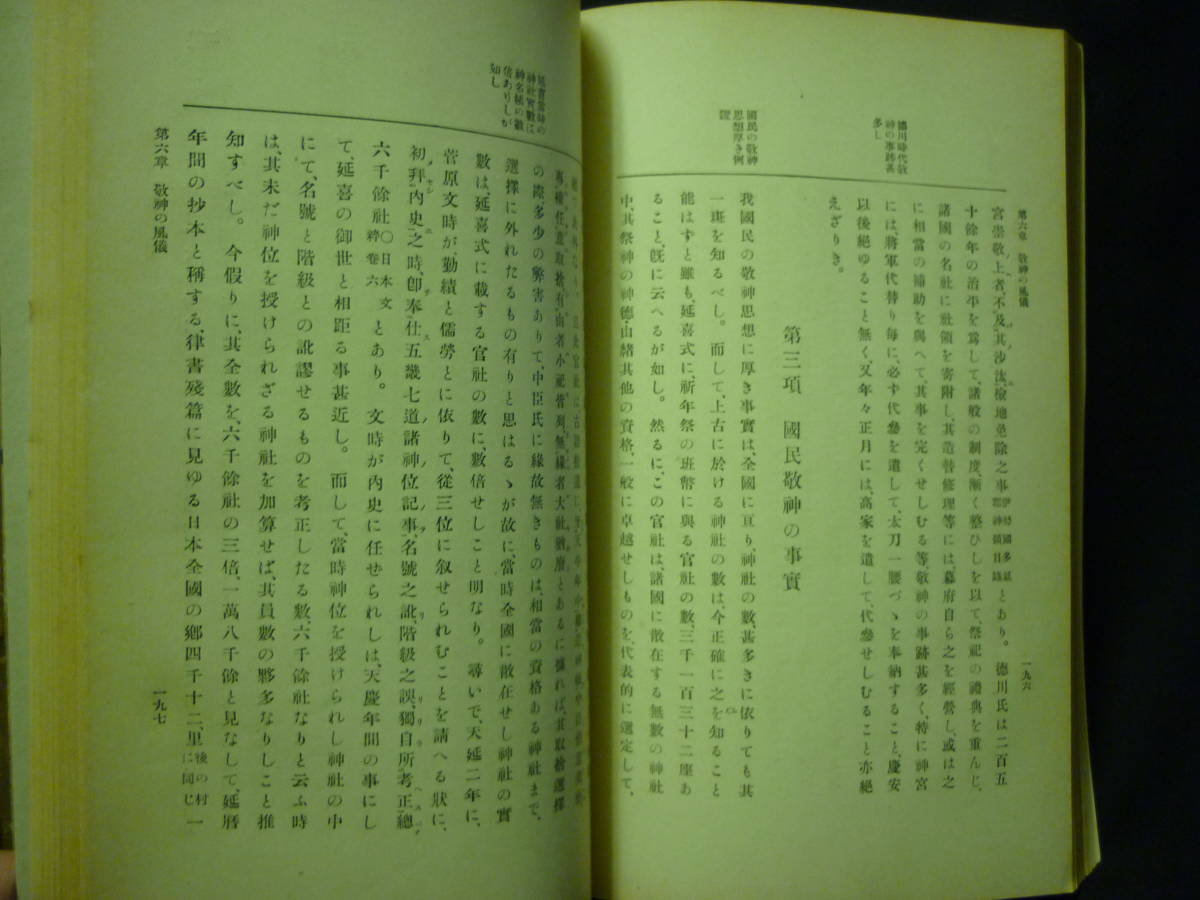 第六章 敬神の風儀
一九六
德川時代敬
神の事跡甚
多し
國民の敬神
思想厚き例
證
宮崇敬上者不及其沙汰、檢地免除之事とあり。德川氏は二百五
十餘年の治平を爲して、諸般の制度漸く整ひしを以て、祭祀の禮典を重んじ、
諸國の名社に社領を寄附し、其造替修理等には、幕府自ら之を經營し、或は之
に相當の補助を與へて、其事を完くせしむる等、敬神の事跡甚多く、特に神宮
には、將軍代替り毎に、必ず代參を遣して、太刀一腰づゝを奉納すること、慶安
以後絕ゆること無く、又年々正月には、高家を遣して、代參せしむること亦絕
えざりき。
第三項 國民敬神の事實
我國民の敬神思想に厚き事實は、全國に亘り、神社の數、甚多きに依りても其
一斑を知るべし。而して、上古に於ける神社の數は、今正確に之を知ること
能はずと雖も、延喜式に、祈年祭の班幣に與る官社の數、三千一百三十二座あ
ること、旣に云へるが如し。然るに、この官社は、諸國に散在する無數の神社
中、其祭神の神德、由緖其他の資格、一般に卓越せしものを、代表的に選定して、
延喜當時の
神社實數は
神名帳の數
倍ありしが
如し
專權任意、取捨有由者小祀皆列、無緣者大社猶廢とあるに據れば、其取捨選擇
の際多少の弊害ありて、中臣氏に緣故無きものは、相當の資格ある神社まで、
選擇に外れたるもの有りと思はるゝが故に、當時全國に散在せし神社の實
數は、延喜式に載する官社の數に、數倍せしこと明なり。尋いで、天延二年に、
菅原文時が、勤績と儒勞とに依りて、從三位に叙せられむことを請へる狀に、
初拜內史之時、卽奉仕五畿七道諸神位記事、名號之訛、階級之誤、獨自所考正、總
六千餘社〇日本文粹卷六とあり。文時が內史に任せられしは、天慶年間の事にし
て、延喜の御世と相距る事甚近し。而して、當時神位を授けられし神社の中
にて、名號と階級との訛謬せるものを考正したる數、六千餘社なりと云ふ時
は、其未だ神位を授けられざる神社を加算せば、其員數の夥多なりしこと推
知すべし。今假りに、其全數を、六千餘社の三倍、一萬八千餘と見なして、延曆
年間の抄本と稱する、律書殘篇に見ゆる日本全國の鄕四千十二、里後の村に同じ一
第六章 敬神の風儀
一九七